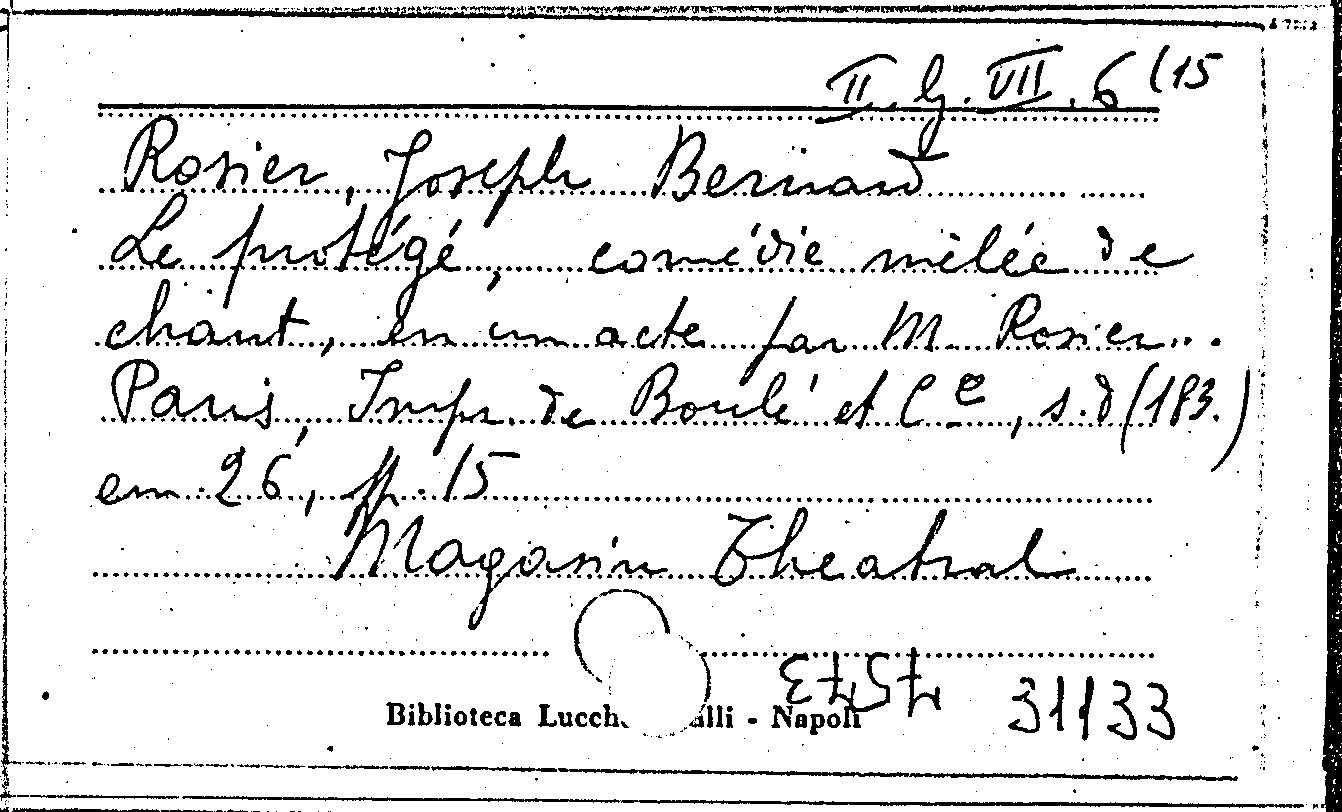 II. G. VII. 6 (15
Rosier, Joseph Bernard
Le protégé, comédie mêlée de
chant, en un acte par M. Rosier...
Paris, Impr. de Boulé et C.e, s.d (183.)
cm. 26, pp. 15
Magasin Theatral
31133
Biblioteca Lucch alli - Napoli